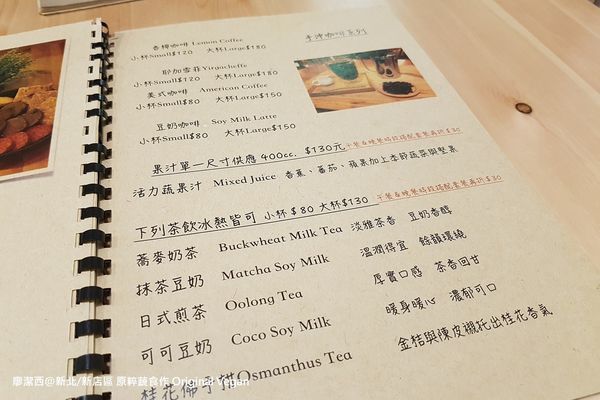 手沖咖啡系列
香檸咖啡 Lemon Coffee
小杯Small$120 大杯Large$180
耶加雪菲Yirgacheffe
小杯Small$120 大杯Large$180
美式咖啡 American Coffee
小杯Small$80 大杯Large$150
豆奶咖啡 Soy Milk Latte
小杯Small$80 大杯Large$150
果汁單一尺寸供應 400cc. $130元
活力蔬果汁 Mixed Juice 香蕉、蕃茄、蘋果加上本節蔬菜與堅果
下列茶飲冰熱皆可 小杯$80 大杯$130
蕎麥奶茶 Buckwheat Milk Tea 淡雅茶香 豆奶香醇
抹茶豆奶 Matcha Soy Milk 溫潤得宜 餘韻環繞
日式煎茶 Oolong Tea 厚實口感 茶香回甘
可可豆奶 Coco Soy Milk 暖身暖心 濃郁可口
桂花佛手柑Osmanthus Tea 金桔與陳皮襯托出桂花香氣
廖潔西@新北/新店區 原粹蔬食作 Original Vegan